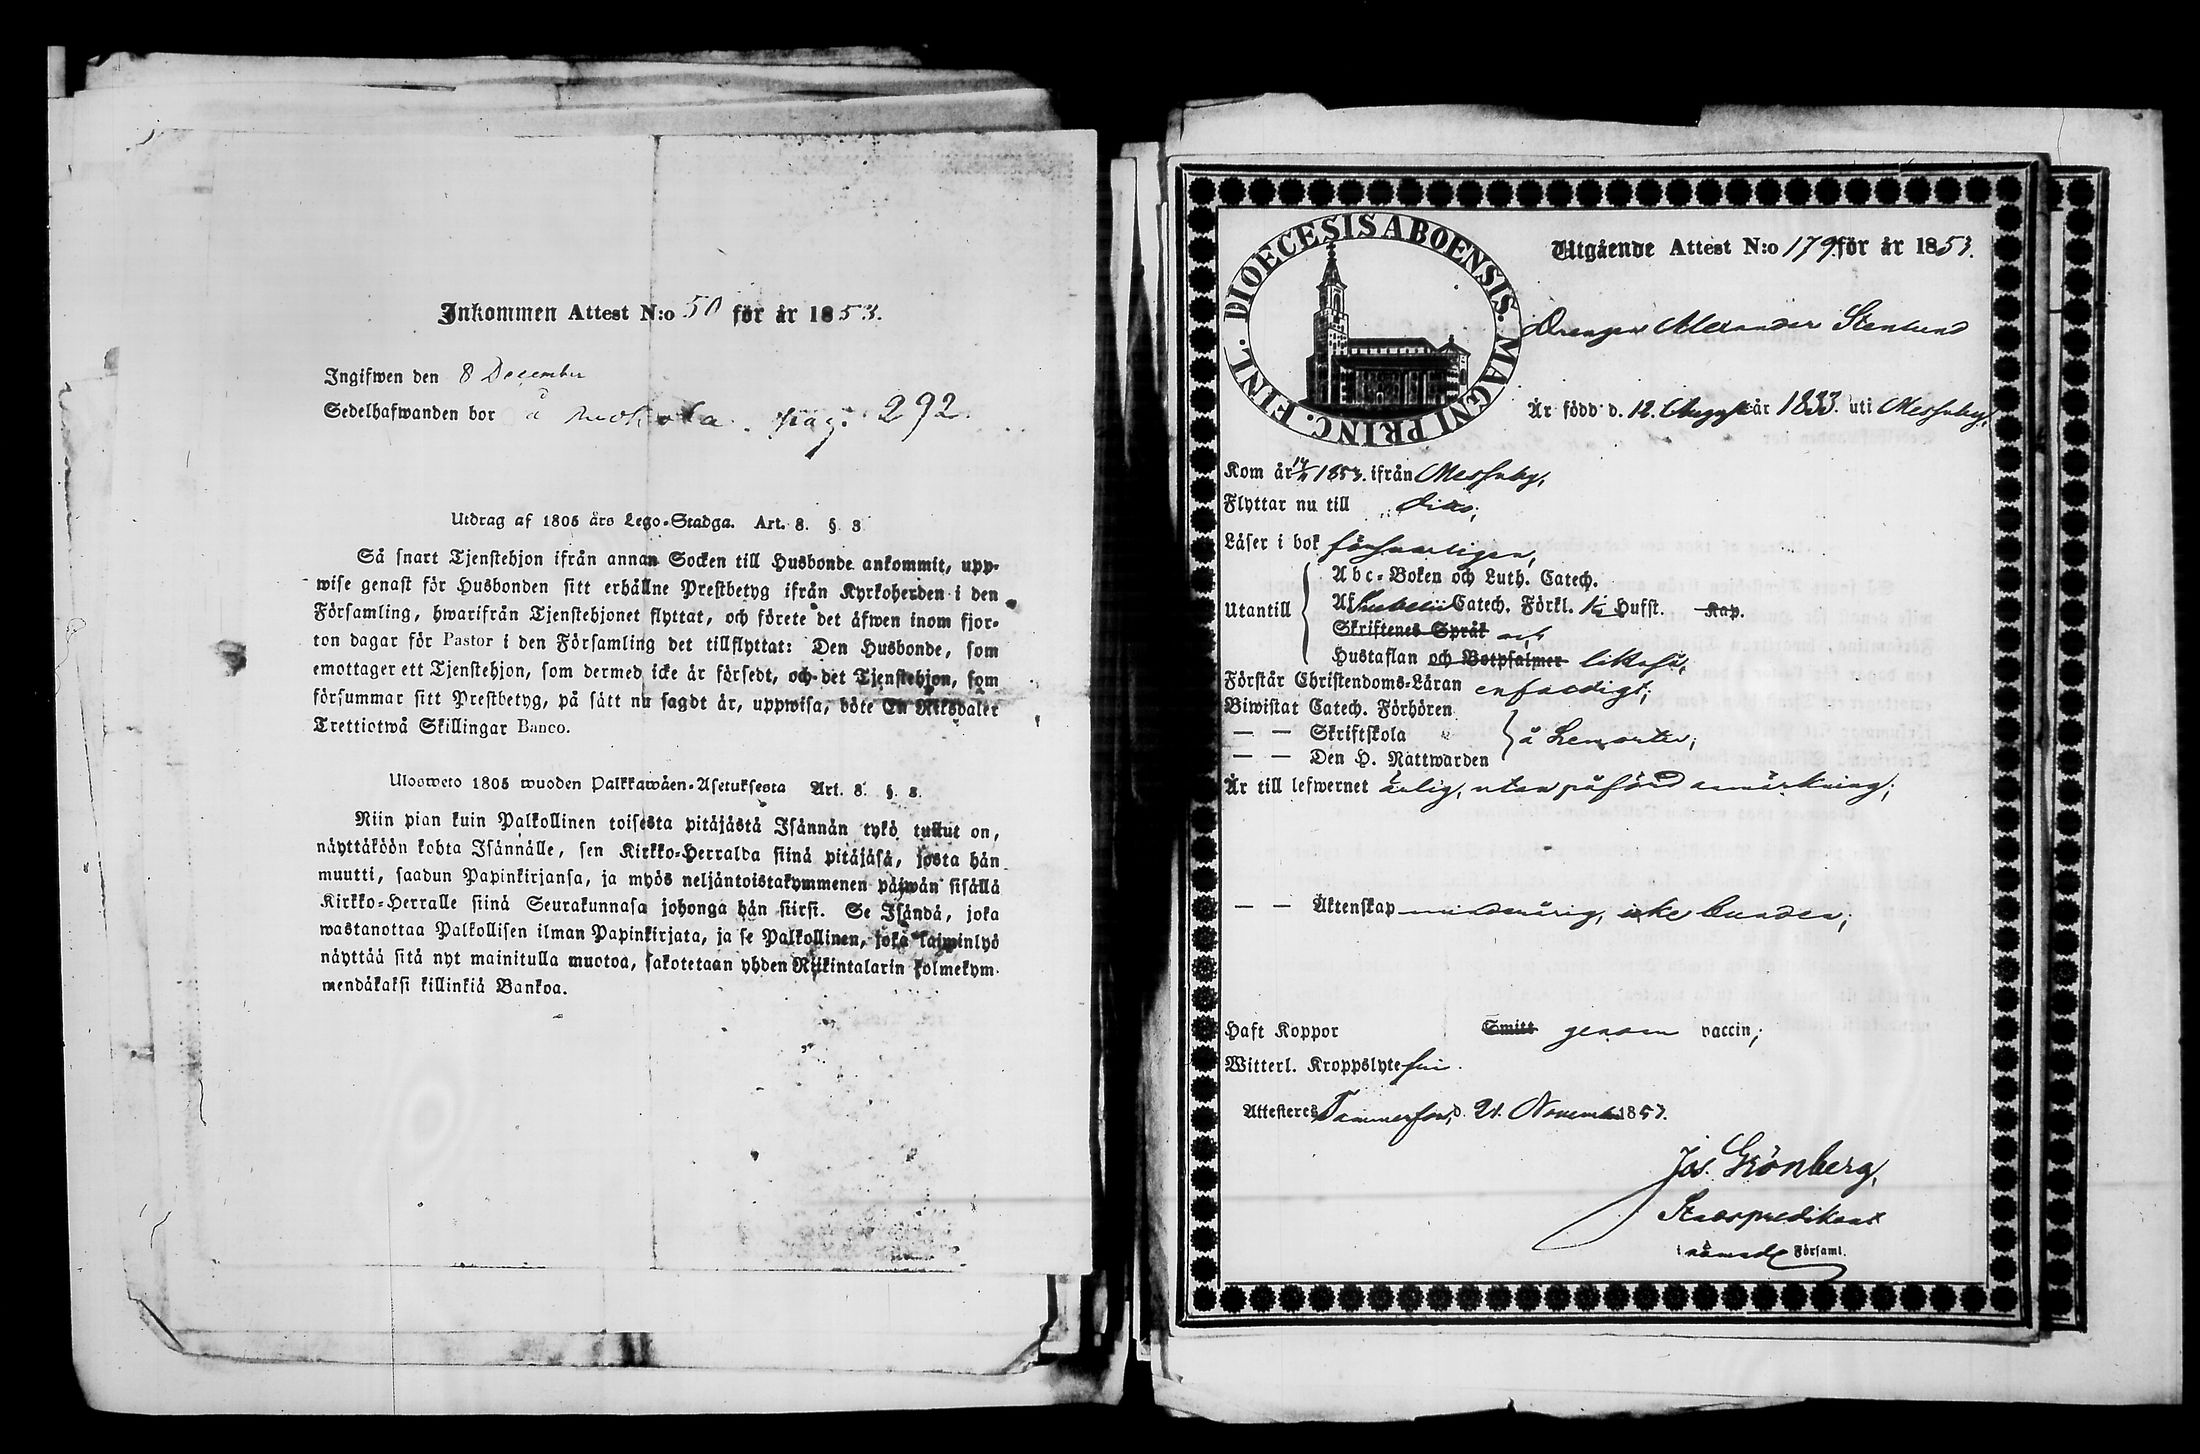 Inkommen Attest N:o 50 för år 1853.
Ingifwen den 8 December
Sedelhafwanden bor å pag. 292.
Utdrag af 1805 års Lego-Stadga. Art. 8. § 3
Så snart Tjenstehjon ifrån annan Socken till Husbonde ankommit, upp-
wise genast för Husbonden sitt erhållne Prestbetyg ifrån Kyrkoherden i den
Församling, hwarifrån Tjenstehjonet flyttat, och förete det äfwen inom fjor-
ton dagar för Pastor i den Församling det tillflyttat: Den Husbonde, som
emottager ett Tjenstehjon, som dermed icke är försedt, och det Tjenstehjon, som
försummar sitt Prestbetyg, på sätt nu sagdt är, uppwisa, böte En Riksdaler
Trettiotwå Skillingar Banco.
Ulosweto 1805 wuoden Palkkawäen-Asetuksesta Art. 8. §. 3.
Niin pian kuin Palkollinen toisesta pitäjästä Isännän tykö tullut on,
näyttäköön kohta Isännälle, sen Kirkko-Herralda siinä pitäjäsä, josta hän
muutti, saadun Papinkirjansa, ja myös neljäntoistakymmenen päiwän sisällä
Kirkko-Herralle siinä Seurakunnasa johonga hän siirsi. Se Isändä, joka
wastanottaa Palkollisen ilman Papinkirjata, ja se Palkollinen, joka laiminlyö
näyttää sitä nyt mainitulla muotoa, sakotetaan yhden Riikintalarin kolmekym-
mendäkaksi killinkiä Bankoa.
DIOECESIS ABOENSIS. MAGNI PRINC. FINL.
Utgående Attest N:o 179 för år 1853.
Drengen Alexander Stenlund
Är född d. 12. Augusti år 1833. uti Messuby,
Kom år 1853. ifrån Messuby,
Flyttar nu till dito,
Läser i bok försvarligen,
Utantill
Abc-Boken och Luth. Catech.
Af Svebelii Catech. Förkl. 1/2 Hufst. Kap.
Skriftenes Språk och
Hustaflan och Botpsalmer likaså,
Förstår Christendoms-Läran enfaldigt;
Biwistat Catech. Förhören
— — Skriftskola
— — Den H. Nattwarden
å Lemorter;
Är till lefwernet ärlig, utan påförd anmärkning;
— — Äktenskap minderårig, icke bunden;
Haft Koppor Smitt genom vaccin;
Witterl. Kroppslyte fri.
Attesteres Tammerfors, d. 21. November 1853.
Jos. Grönberg,
Stadspredikant
i nämnde Församl.